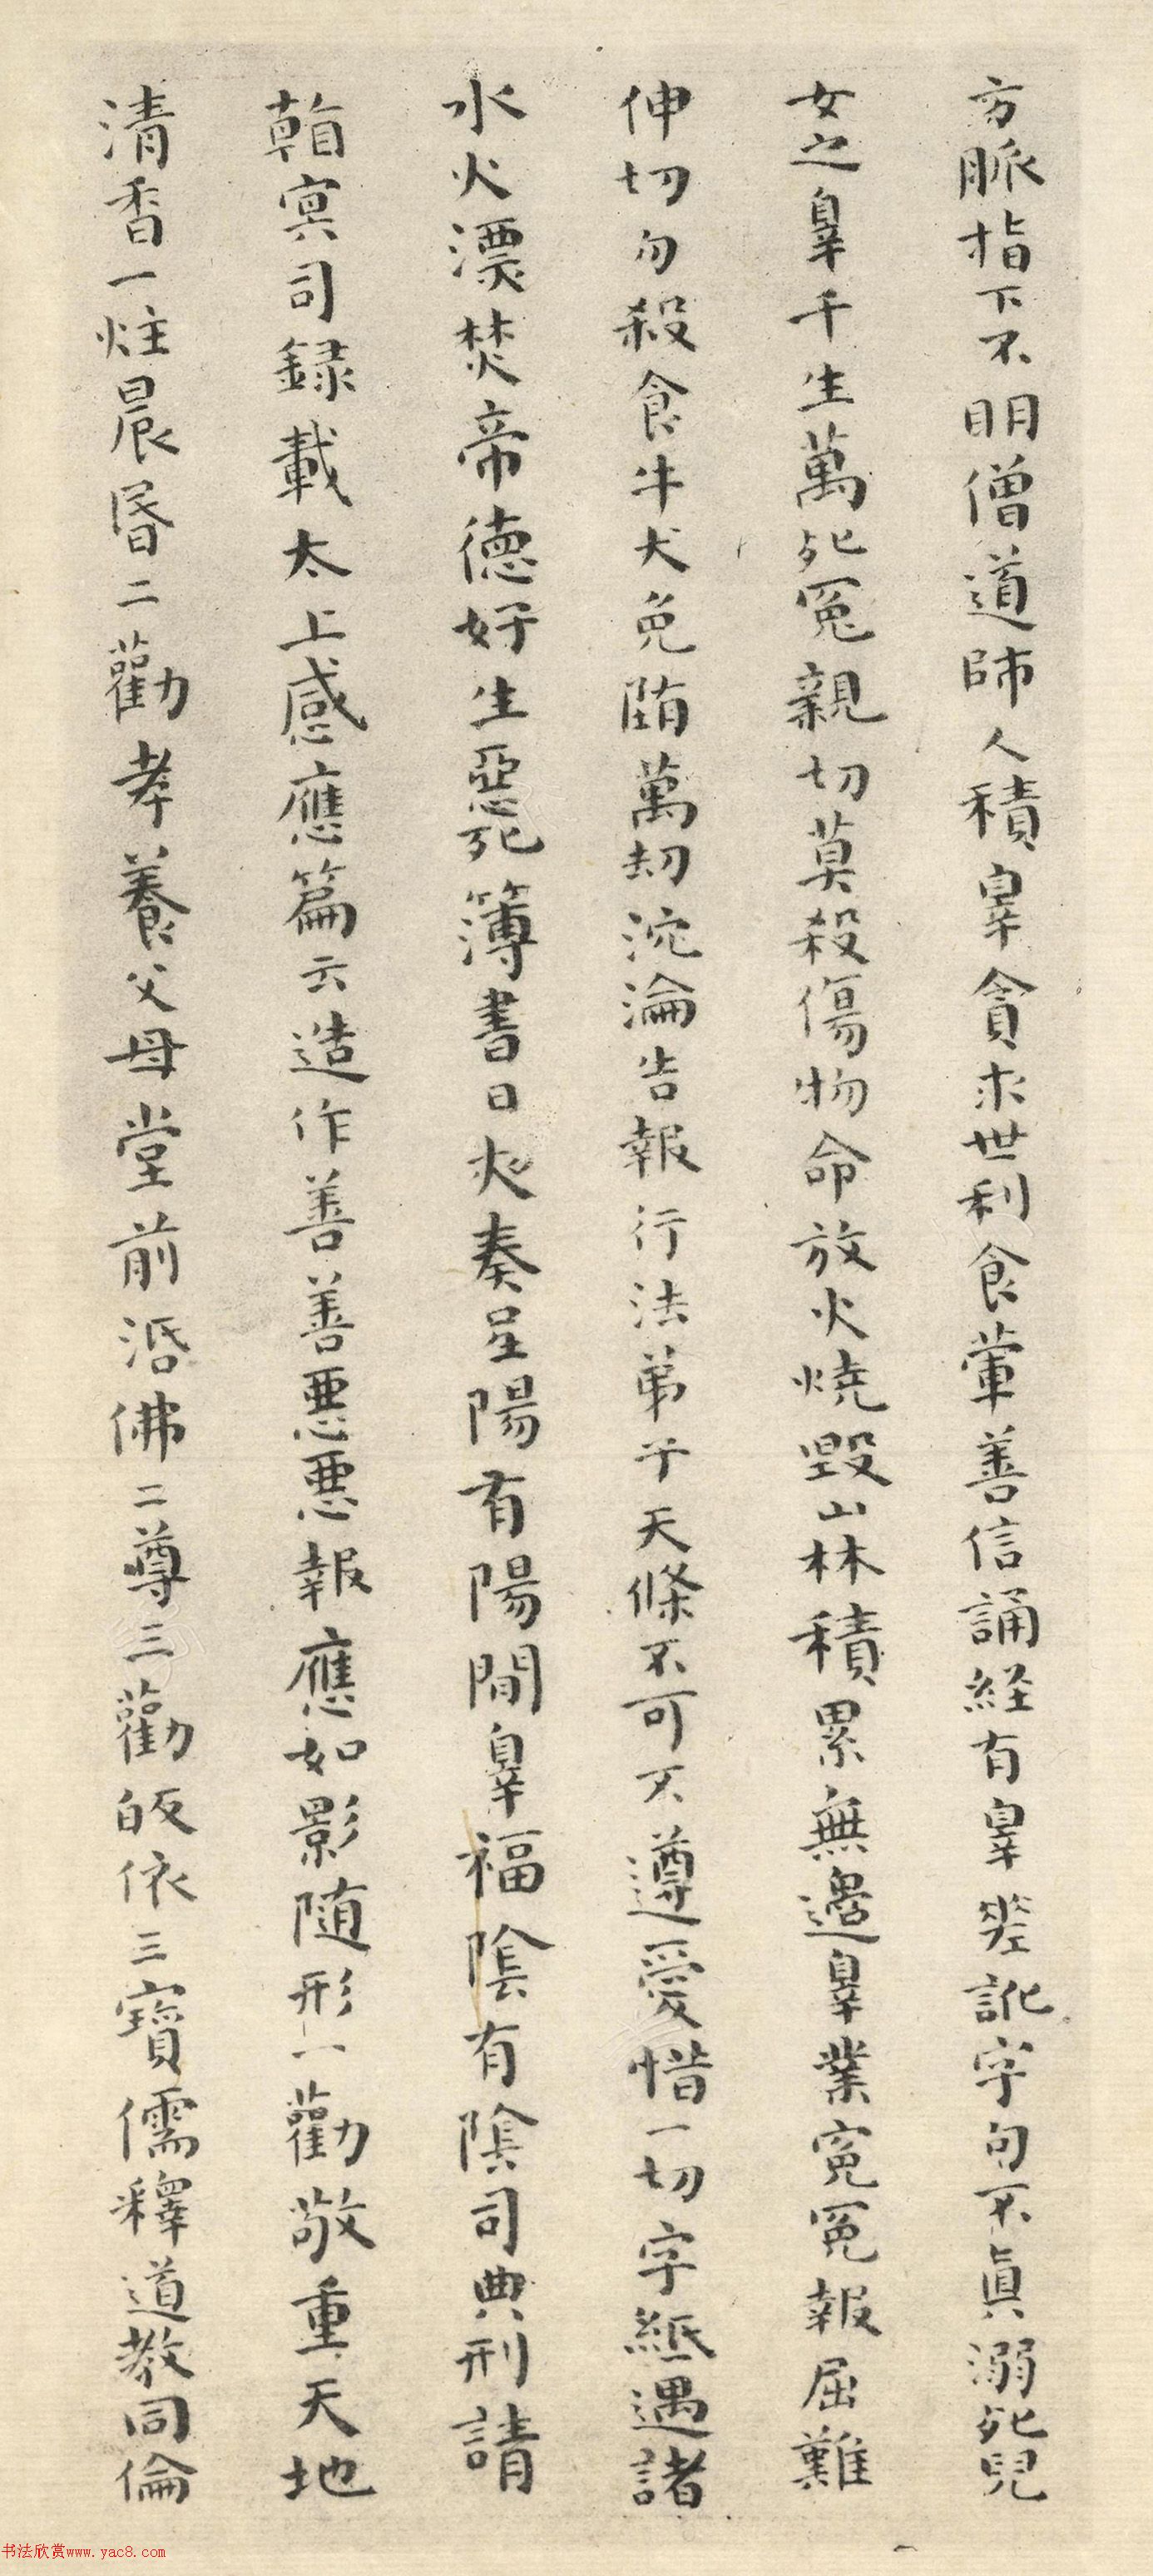 方脈指下不明僧道師人積辠貪求世利食葷善信誦経有辠差訛字句不眞溺死兒
女之辠千生萬死冤親切莫殺傷物命放火燒毀山林積累無邊辠業冤冤報屈難
伸切勿殺食牛犬免陏萬劫沉淪告報行法弟子天條不可不遵愛惜一切字紙遇諸
水火漂焚帝德好生惡死簿書日夾奏呈陽有陽間辠福陰有陰司典刑請
㫋冥司録載太上感應篇云造作善善悪悪報應如影随形一勸敬重天地
清香一炷晨昬二勸孝養父母堂前活佛二尊三勸皈依三寶儒釋道教同倫
书法欣赏www.yac8.com